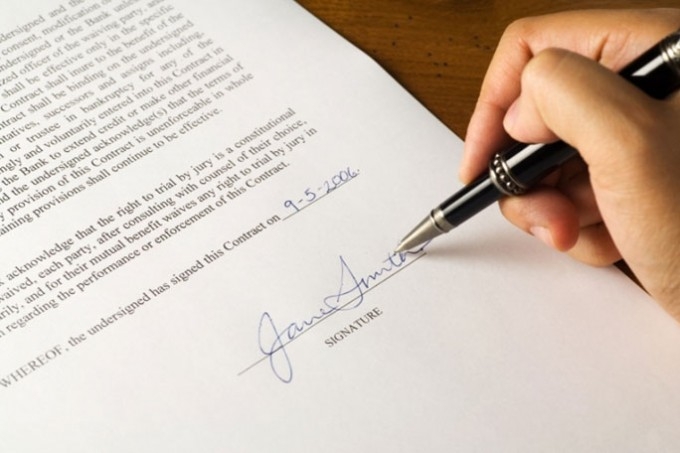 undersigned and the
consent, modification or
undersigned or the Bank unless
ized officer of the waiving party, and
shall be effective only in the specific
Contract shall inure to the benefit of the
tract shall be binding on the undersigned
tatives, successors and assigns including,
or trustee in bankruptcy for any of the
ngly and voluntarily entered into this Contract in
the Bank to extend credit or make other financial
d the undersigned acknowledge(s) that the terms of
y provision of this Contract is unenforceable in whole
maining provisions shall continue to be effective.
acknowledge that the right to trial by jury is a constitutional
waived, each party, after consulting with counsel of their choice,
rily, and for their mutual benefit waives any right to trial by jury in
n regarding the performance or enforcement of this Contract.
WHEREOF, the undersigned has signed this Contract on 9-5-2006.
Jane Smith
SIGNATURE